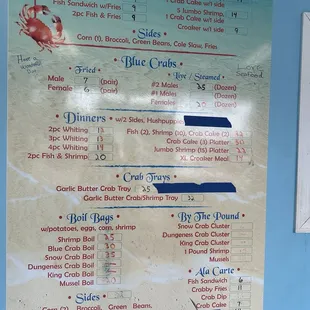 Fish Sandwich w/Fries 9
2pc Fish & Fries
Crab Cake w/1 side
5 Jumbo Shrimp 14
1 Crab Cake w/ side
Croaker w/1 side 9
• Sides •
Corn (1), Broccoli, Green Beans, Cole Slaw, Fries
• Blue Crabs •
Fried •
Male 7 (pair)
Female 6 (pair)
Live / Steamed •
#2 Males 25 (Dozen)
#1 Males (Dozen)
Females 20 (Dozen)
• Dinners • w/2 Sides, Hushpuppies
2pc Whiting 13
3pc Whiting 14
4pc Whiting 15
2pc Fish & Shrimp 20
Fish (2), Shrimp (10), Crab Cake (2)
Crab Cake (3) Platter
Jumbo Shrimp (15) Platter
XL Croaker Meal 14
Crab Trays •
Garlic Butter Crab Tray 25
Garlic Butter Crab/Shrimp Tray 32
• Boil Bags •
w/potatoes, eggs, corn, shrimp
Shrimp Boil
Blue Crab Boil
Snow Crab Boil
Dungeness Crab Boil
King Crab Boil
Mussel Boil
• By The Pound •
Snow Crab Cluster
Dungeness Crab Cluster
King Crab Cluster
1 Pound Shrimp
Mussels
• Ala Carte •
Fish Sandwich 6
Crabby Fries 11
Crab Dip
Crab Cake 7
Sides •
Corn (2), Broccoli, Green Beans,